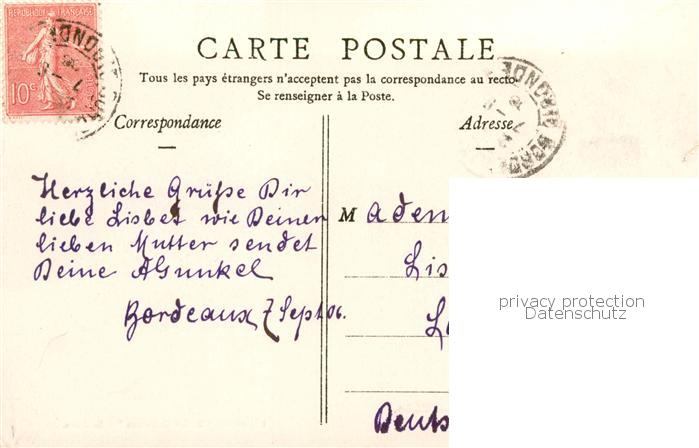 REPUBLIQUE FRANÇAISE
10c
CARTE POSTALE
Tous les pays étrangers n'acceptent pas la correspondance au recto
Se renseigner à la Poste.
Correspondance
Adresse
Herzliche Grüße Dir
liebe Lisbet wie Deiner
lieben Mutter sendet
Deine AGunkel
Bordeaux, 7 Sept 06.
M adem
Lis
Deuts
privacy protection
Datenschutz